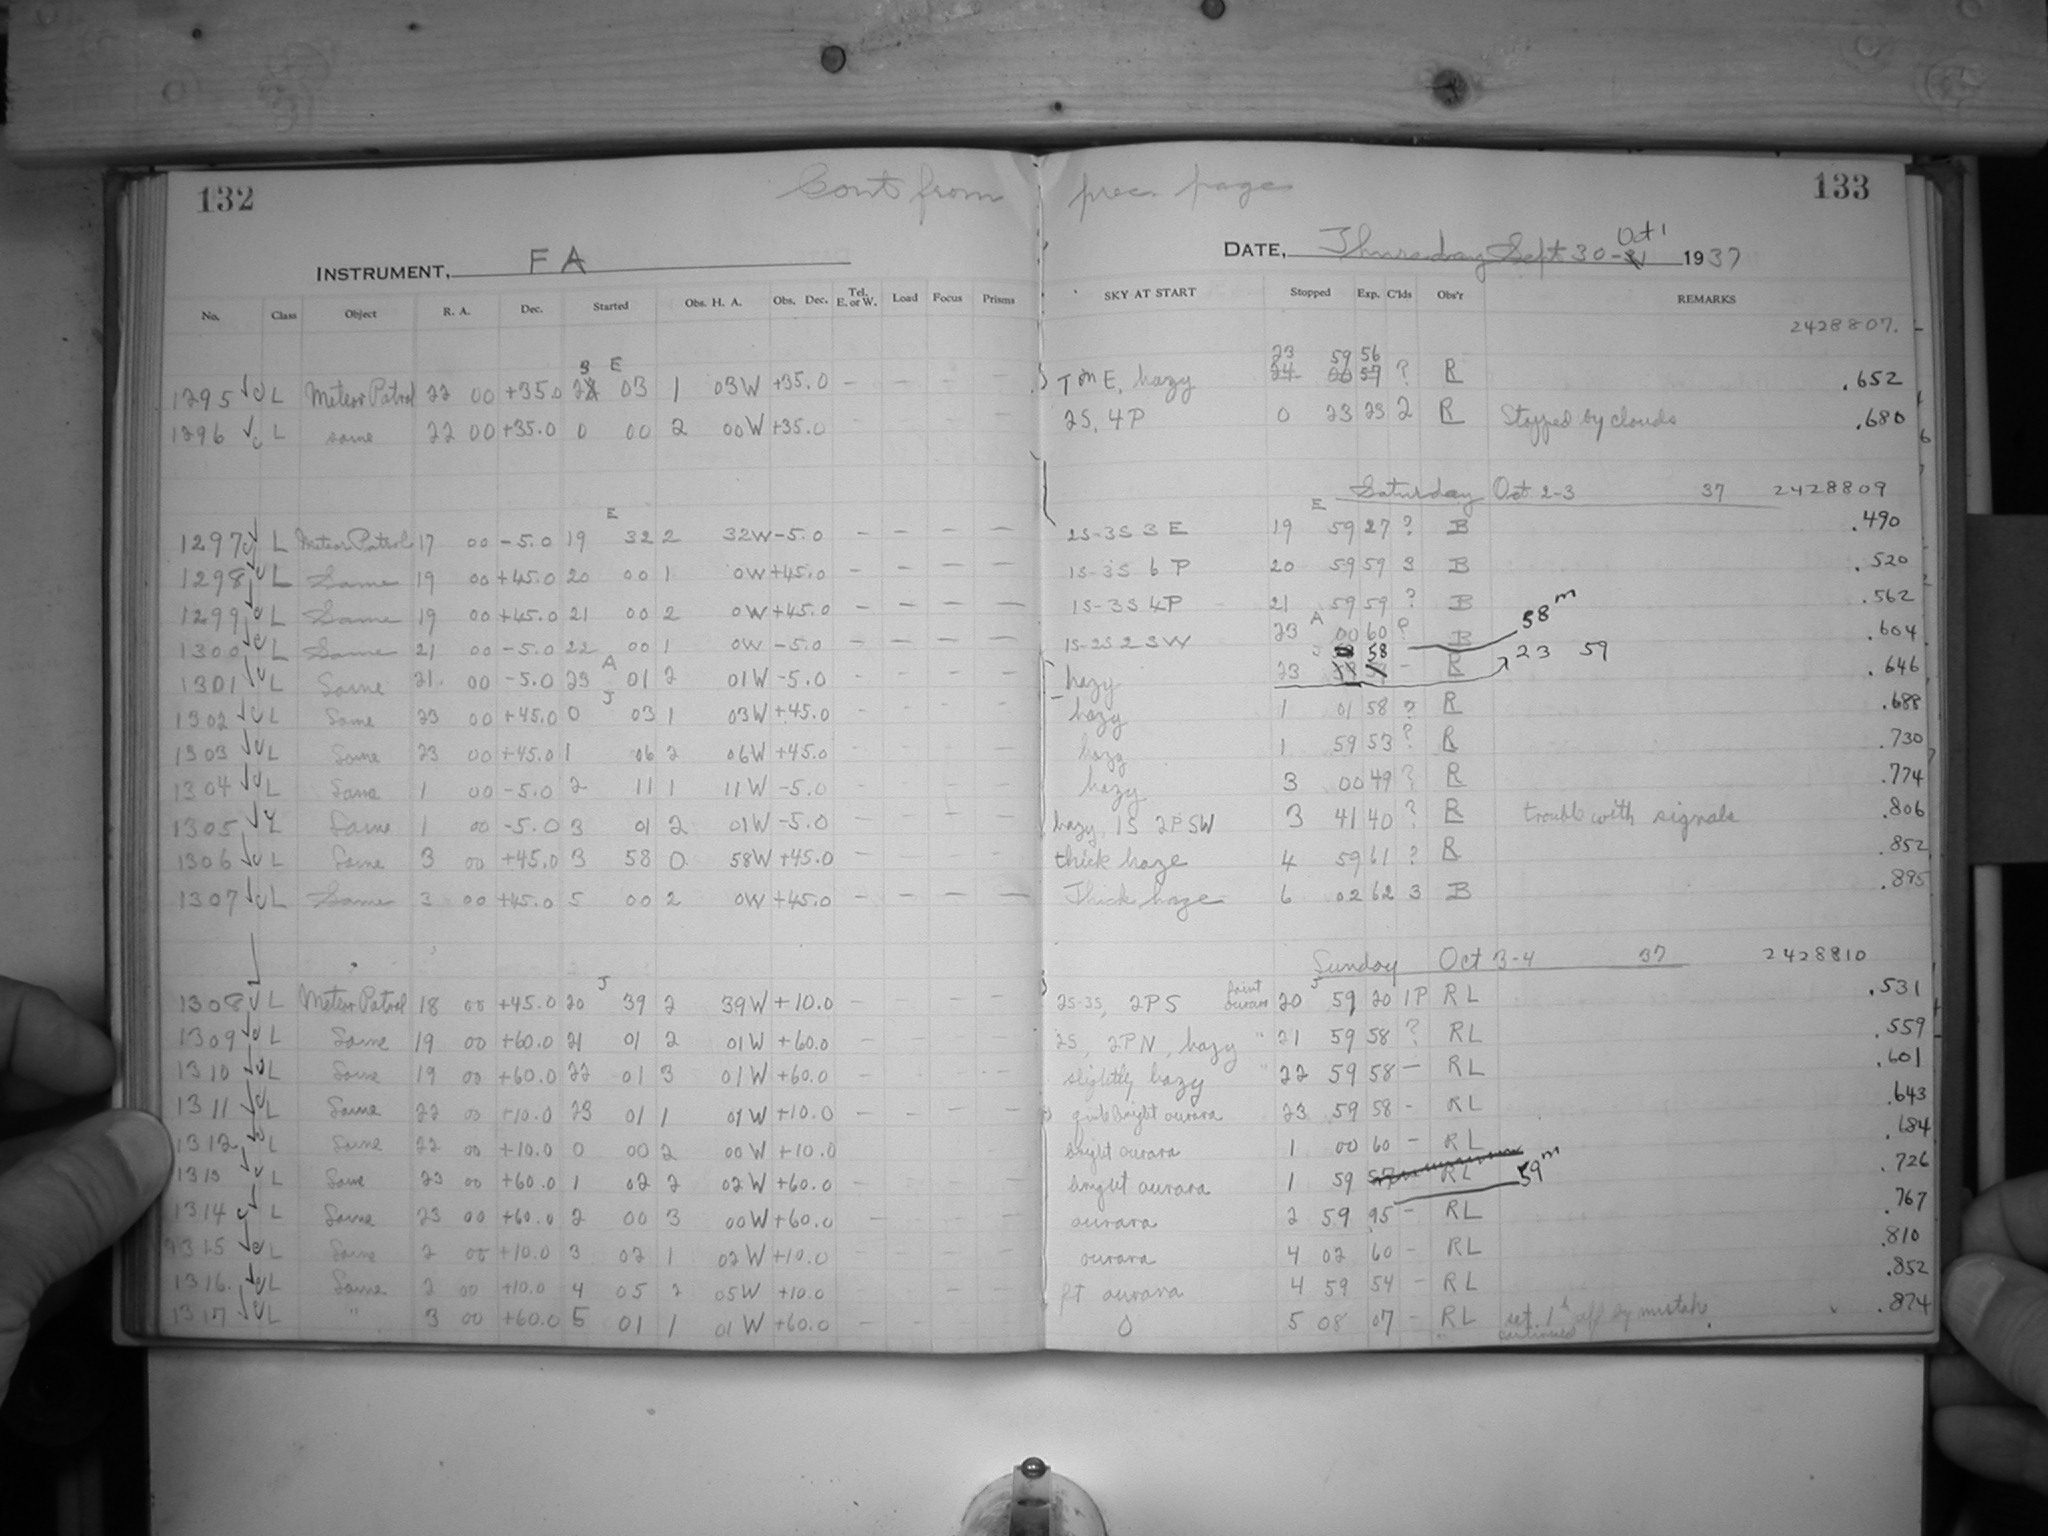 132 Cont from prec. page 133
INSTRUMENT, FA DATE, Thursday Sept 30 - Oct 1 1937
No. Class Object R. A. Dec. Started Obs. H. A. Obs. Dec. Tel. E. or W. Load Focus Prisms SKY AT START Stopped Exp. C'lds Obs'r REMARKS
2428807.
3 E 23 59 56
1295 L Meteor Patrol 22 00 +35.0 2 03 1 03W +35.0 - - - - E, hazy 24 00 57 ? R .652
1296 L same 22 00 +35.0 0 00 2 00W +35.0 2S, 4P 0 23 23 2 R Stopped by clouds .680
Saturday Oct 2-3 37 2428809
E E
1297 L Meteor Patrol 17 00 -5.0 19 32 2 32W -5.0 - - - - 2S-3S 3E 19 59 27 ? B .490
1298 L Same 19 00 +45.0 20 00 1 0W +45.0 - - - - 1S-3S 6P 20 59 59 3 B .520
1299 L Same 19 00 +45.0 21 00 2 0W +45.0 - - - - 1S-3S 4P 21 59 59 ? B .562
A 58m
1300 L Same 21 00 -5.0 22 00 1 0W -5.0 - - - - 1S-2S 2 3W 23 00 60 ? B .604
A J 58 23 59
1301 L Same 21 00 -5.0 23 01 2 01W -5.0 - - - - hazy 23 - R .646
J
1302 L Same 23 00 +45.0 0 03 1 03W +45.0 - - - - hazy 1 01 58 ? R .688
1303 L Same 23 00 +45.0 1 06 2 06W +45.0 - - - - hazy 1 59 53 ? R .730
1304 L Same 1 00 -5.0 2 11 1 11W -5.0 - - - - hazy 3 00 49 ? R .774
1305 L Same 1 00 -5.0 3 01 2 01W -5.0 - - - - hazy, 1S 2P SW 3 41 40 ? R trouble with signals .806
1306 L Same 3 00 +45.0 3 58 0 58W +45.0 - - - - thick haze 4 59 61 ? R .852
1307 L Same 3 00 +45.0 5 00 2 0W +45.0 - - - - Thick haze 6 02 62 3 B .895
Sunday Oct 3-4 37 2428810
J J
1308 L Meteor Patrol 18 00 +45.0 20 39 2 39W +10.0 - - - - 2S-3S, 2PS faint aurora 20 59 20 1P RL .531
1309 L Same 19 00 +60.0 21 01 2 01W +60.0 - - - - 2S, 2PN, hazy " 21 59 58 ? RL .559
1310 L Same 19 00 +60.0 22 01 3 01W +60.0 - - - - slightly hazy " 22 59 58 - RL .601
1311 L Same 22 00 +10.0 23 01 1 01W +10.0 - - - - quite bright aurara 23 59 58 - RL .643
1312 L Same 22 00 +10.0 0 00 2 00W +10.0 - - - - bright aurara 1 00 60 - RL .684
1313 L Same 23 00 +60.0 1 02 2 02W +60.0 - - - - bright aurara 1 59 57 RL 59m .726
1314 L Same 23 00 +60.0 2 00 3 00W +60.0 - - - - aurara 2 59 95 - RL .767
1315 L Same 2 00 +10.0 3 02 1 02W +10.0 - - - - aurara 4 02 60 - RL .810
1316. L Same 2 00 +10.0 4 05 2 05W +10.0 - - - - ft aurara 4 59 54 - RL .852
1317 L " 3 00 +60.0 5 01 1 01W +60.0 - - - - 0 5 08 07 - RL set 1h off by mistake .874
continued